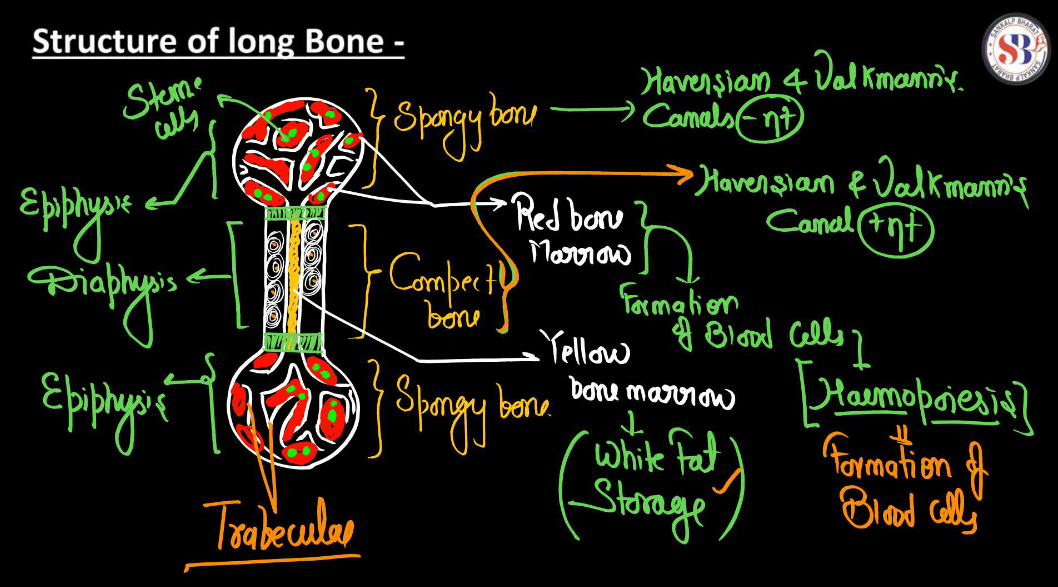 Structure of long Bone -
SANKALP BHARAT
SB
SANKALP BHARAT
Steme
cells
Spongy bone
Haversian & Valkmann's
Canals -nt
Epiphysis
Haversian & Valkmann's
Canal +nt
Red bone
Marrow
Diaphysis
Compect
bone
Formation
of Blood Cells
Yellow
bone marrow
[Haemopoiesis]
Epiphysis
Spongy bone.
(White Fat
Storage)
Formation of
Blood Cells
Trabeculae